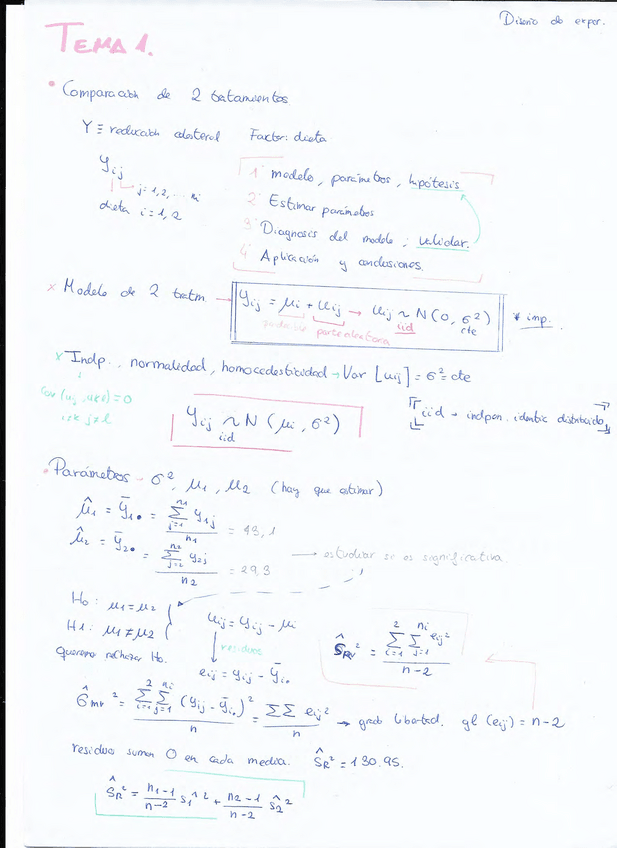 Diseño de exper.
TEMA 1.
• Comparación de 2 tratamientos
Y ≡ reducción colesterol Factor: dieta
y_ij
j = 1, 2, ... n_i
dieta i = 1, 2
1º modelo, parámetros, hipótesis
2º Estimar parámetros
3º Diagnosis del modelo; validar.
4º Aplicación y conclusiones.
× Modelo de 2 tratm. → y_ij = μ_i + u_ij → u_ij ~ N(0, σ²) * imp.
parte aleatoria iid cte
* Indp., normalidad, homocedasticidad → Var [u_ij] = σ² = cte
= 0
y_ij ~ N (μ_i, σ²)
iid
iid → indpen. identic distribuido
• Parámetros → σ², μ₁, μ₂ (hay que estimar)
μ̂₁ = ȳ₁• = Σ_{j=1}^{n₁} y_1j / n₁ = 43,1
μ̂₂ = ȳ₂• = Σ_{j=2}^{n₂} y_2j / n₂ = 29,3
→ estudiar si es significativa.
H₀: μ₁ = μ₂
H1: μ₁ ≠ μ₂
queremos rechazar H₀.
u_ij = y_ij − μ_i
residuos
e_ij = y_ij − ȳ_i•
ŝ_R² = Σ_{i=1}^{2} Σ_{j=1}^{n_i} e_ij² / n−2
σ̂_mv² = Σ_{i=1}^{2} Σ_{j=1}^{n_i} (y_ij − ȳ_i•)² / n = ΣΣ e_ij² / n → grad libertad. gl (e_ij) = n−2
residuos suman 0 en cada media. ŝ_R² = 130.95.
ŝ_R² = n₁−1 / n−2 ŝ₁² + n₂−1 / n−2 ŝ₂²